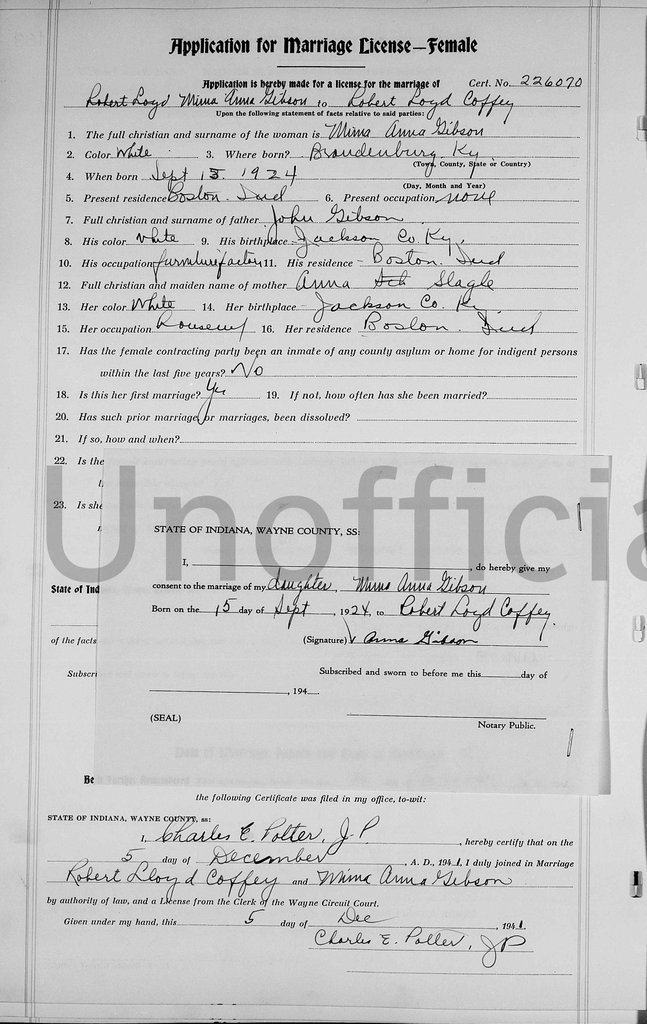 Application for Marriage License—Female
Application is hereby made for a license for the marriage of Cert. No. 226070
Robert Loyd Mima Anna Gibson to Robert Loyd Coffey
Upon the following statement of facts relative to said parties:
1. The full christian and surname of the woman is Mima Anna Gibson
2. Color White 3. Where born? Brandenburg, Ky.
(Town, County, State or Country)
4. When born Sept 15 1924
(Day, Month and Year)
5. Present residence Boston. Ind 6. Present occupation none
7. Full christian and surname of father John Gibson
8. His color White 9. His birthplace Jackson Co. Ky.
10. His occupation furniture factory 11. His residence Boston. Ind
12. Full christian and maiden name of mother Anna Slagle
13. Her color White 14. Her birthplace Jackson Co. Ky
15. Her occupation housewf 16. Her residence Boston. Ind
17. Has the female contracting party been an inmate of any county asylum or home for indigent persons
within the last five years? No
18. Is this her first marriage? Yes 19. If not, how often has she been married?
20. Has such prior marriage, or marriages, been dissolved?
21. If so, how and when?
22. Is the
23. Is she
Unofficia
STATE OF INDIANA, WAYNE COUNTY, SS:
I, , do hereby give my
consent to the marriage of my daughter, Mima Anna Gibson
State of Ind
Born on the 15 day of Sept, 1924, to Robert Loyd Coffey.
of the facts
(Signature) Anna Gibson
Subscri
Subscribed and sworn to before me this day of
, 194
(SEAL)
Notary Public.
Be
the following Certificate was filed in my office, to-wit:
STATE OF INDIANA, WAYNE COUNTY, ss:
I, Charles E. Potter, J.P. , hereby certify that on the
5 day of December , A. D., 1941, I duly joined in Marriage
Robert Lloyd Coffey and Mima Anna Gibson
by authority of law, and a License from the Clerk of the Wayne Circuit Court.
Given under my hand, this 5 day of Dec , 1941.
Charles E. Potter, JP